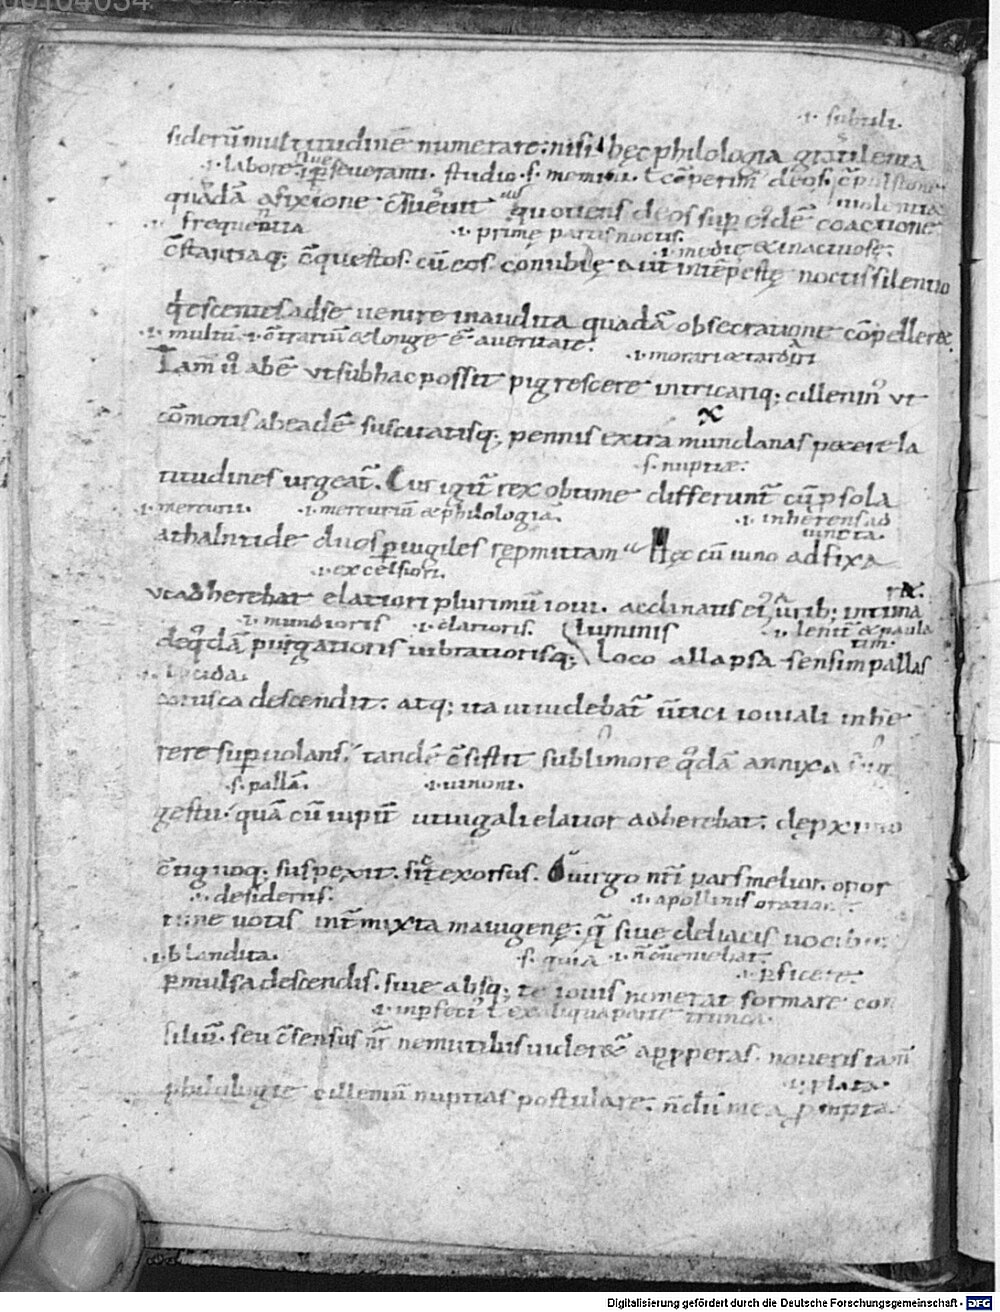 00104034
.i. subtili.
siderū multitudinē numerare: nisi hęc philologia gracilenta
.i. labore siue .i. pseueranti. studio .s. memini. t cōperim deos. cōpulsione
uiolentia
quadā afixione ūit quotiens deos sup eīdē coactione
.i. frequentia .i. primę partis noctis. .i. medię & inactuosę.
c̄stantiaq; c̄questos. cū eos conubię aut intēpestę noctis silentio
descentes ad se uenire inaudita quadā obsecratione cōpellere.
.i. multū .i. c̄trariū & longe ē a ueritate. .i. morari & tardari
Tam abē ut sub hac possit pigrescere intricariq; cillenius ut
cōmotis ab eadē suscitatisq; pennis extra mundanas petere la
.s. nuptię.
titudines urgeat̄. Cur igit̄ rex obtime differunt̄ cū p sola
.i. mercurii. .i. mercuriū & philologiā. .i. inherens ad
iuncta.
athalntide duos puigiles repmittam Hęc cū iuno adfixa
.i. excelsiori.
ut adherebat elatiori plurimū ioui. acclinatis ei urib; intima
.i. mundioris .i. clarioris. luminis .i. lenit̄ & paula
tim.
deqdā purgatioris uibratiorisq; loco allapsa sensim pallas
.i. lucida.
corusca descendit: atq; ita ut uidebat̄ ūtici iouiali inhe
rere supuolans. tandē c̄sistit sublimore qdā annixa sug
.s. pallā. .i. iunoni.
gestu. quā cū iupit̄ ut iugali elatior adherebat. de pximo
c̄tiguoq; suspexit. sic exorsus. O uirgo nr̄i pars melior. opor
.i. desideriis. .i. apollinis oration
tune uotis int̄mixta maiugenę: siue deliacis uocibus
.i. blandita. .s. quia .i. n̄ cōueniebat .i. pficere.
pmulsa descendis. siue absq; te iouis non erat formare con
.i. inpfecti t ex aliqua parte trunca.
siliū. seu c̄sensus nr̄ nemutibus uideret apperas. noueris tam̄
.i. plata.
philologie cilleniū nuptias postulare. n̄dū mea pmpta
Digitalisierung gefördert durch die Deutsche Forschungsgemeinschaft - DFG